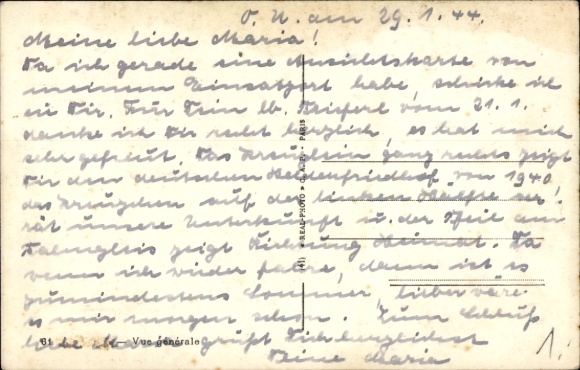 O. U. am 29. 1. 44.
Meine liebe Maria!
Da ich gerade eine Ansichtskarte von
meinem Einsatzort habe, schicke ich
sie Dir. Für Dein lb. Brieferl vom 21. 1.
danke ich Dir recht herzlich, es hat mich
sehr gefreut. Das Kreuzlein ganz rechts zeigt
Dir den deutschen Heldenfriedhof von 1940
das Kreuzchen auf der linken Hälfte ver-
rät unsere Unterkunft u. der Pfeil am
Bahngleis zeigt Richtung Heimat. Da
wenn ich wieder fahre, dann ist es
zumindestens Sommer, lieber wäre
es mir morgen schon. Zum Schluß
liebe grüßt Dich herzlichst
Deine Maria
1.
61 — Vue générale
(41) « REAL-PHOTO » C. A. P. - PARIS